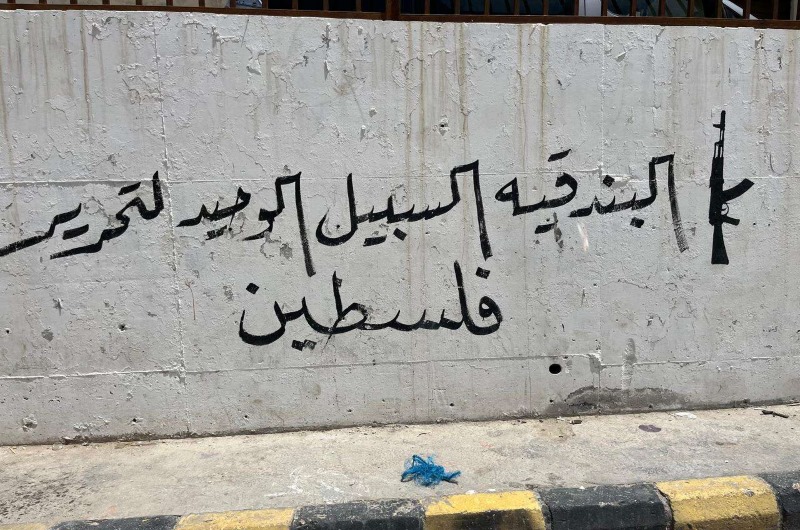 البندقيه السبيل الوحيد لتحرير
فلسطين